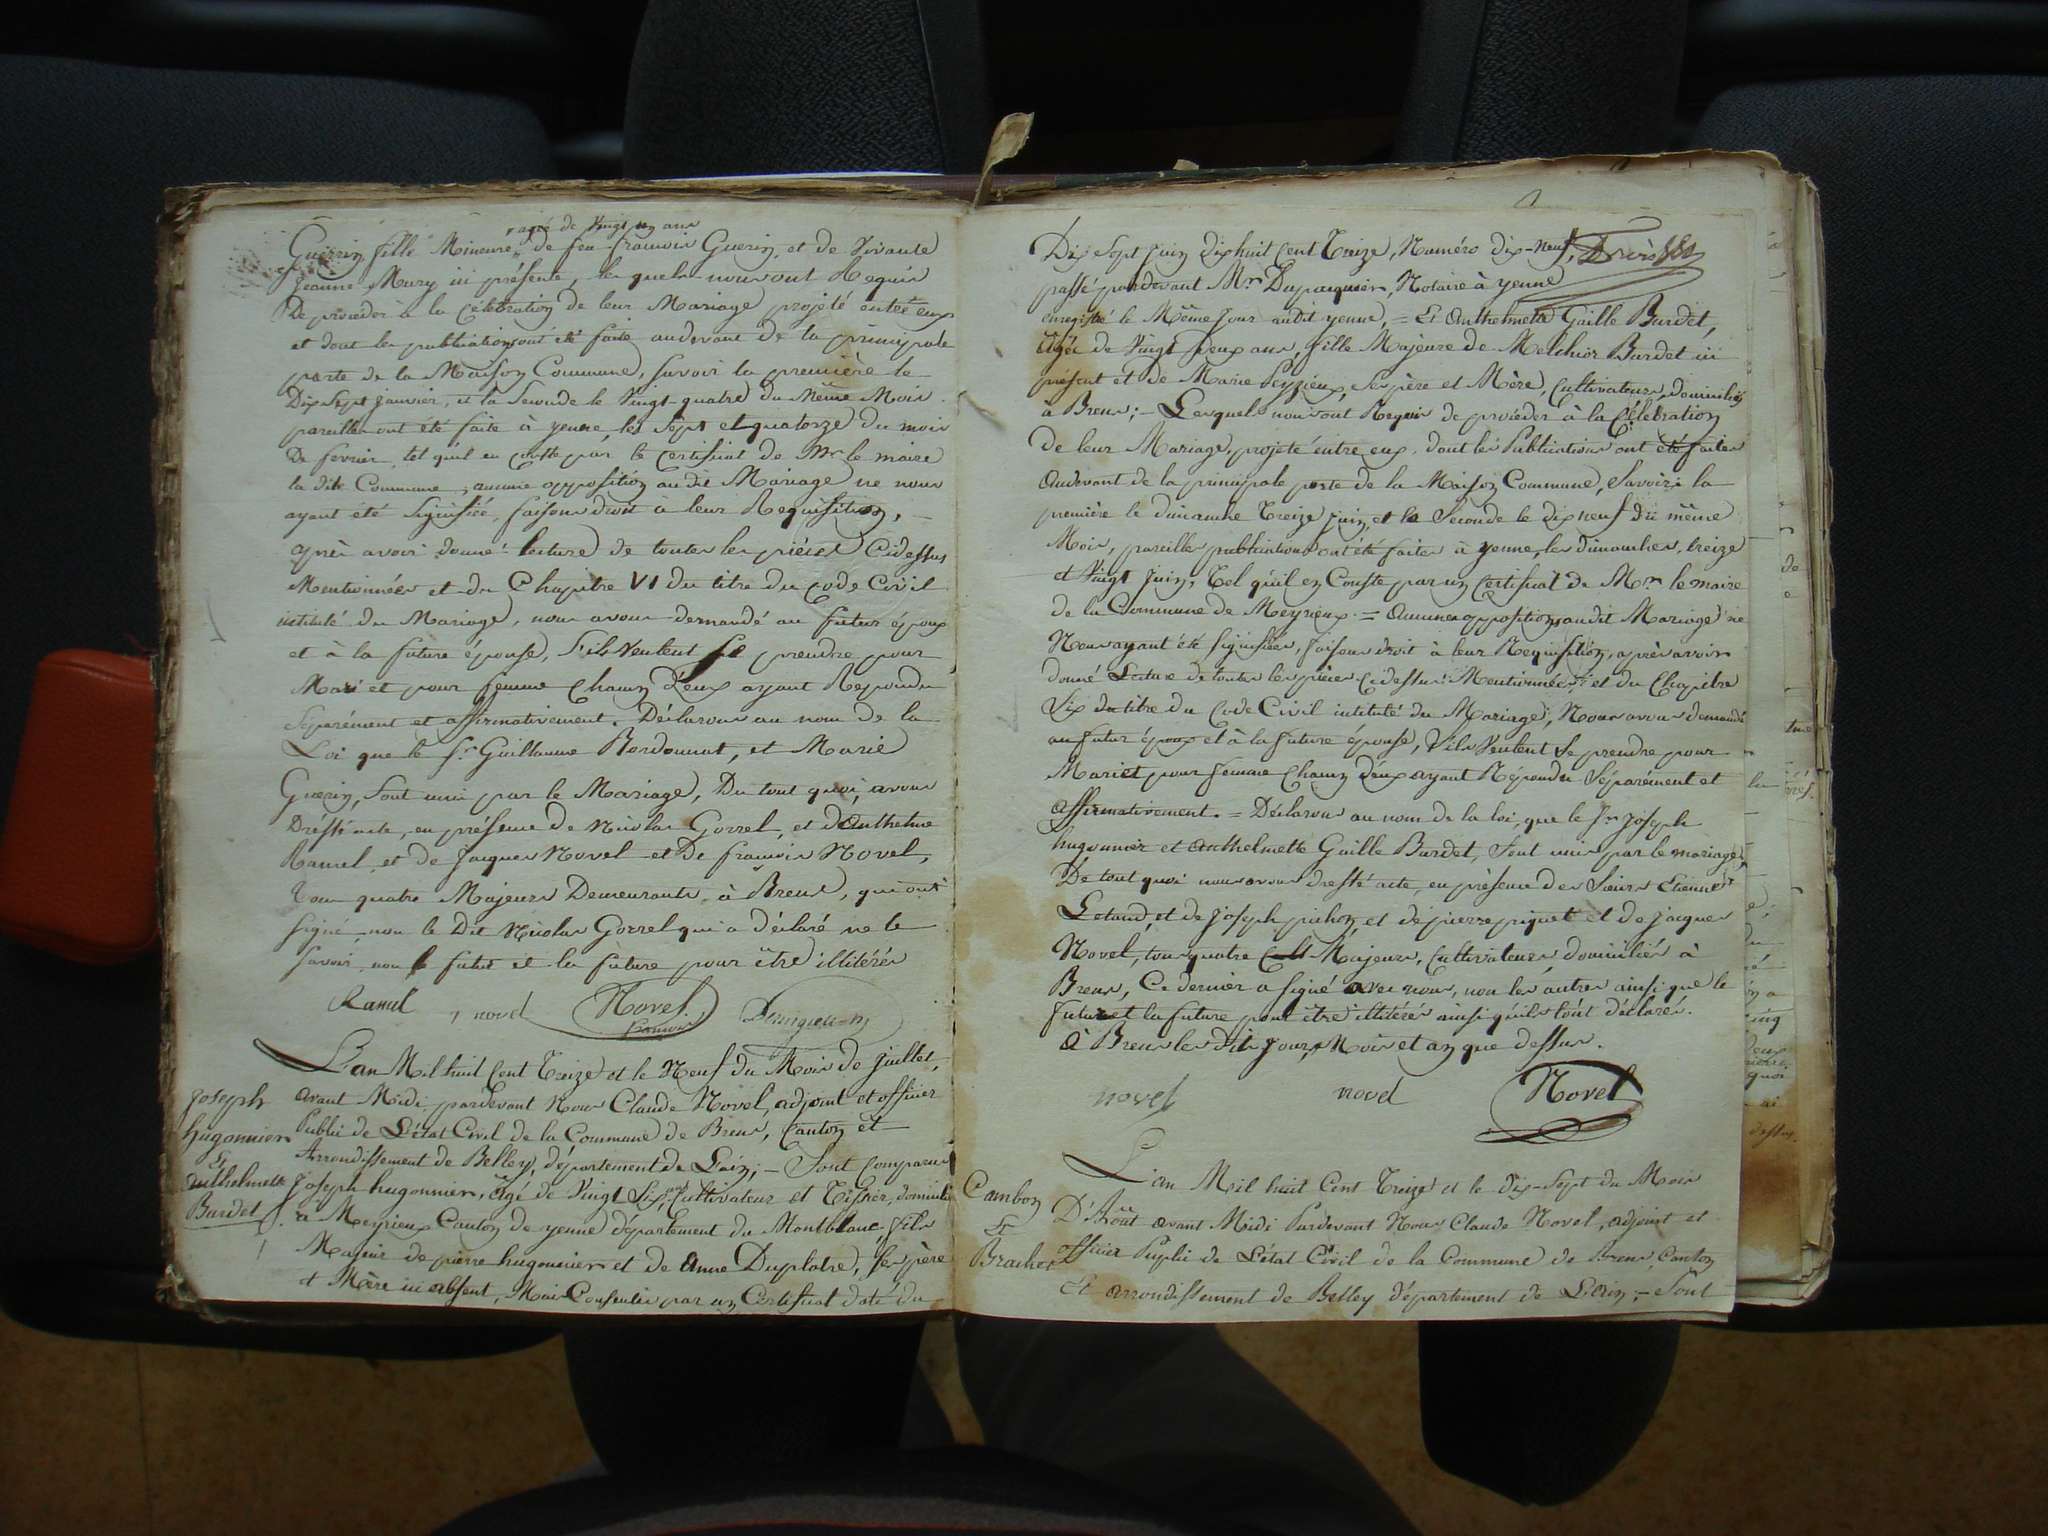 agée de Vingt un ans
Guerin fille Mineure, de feu francois Guerin, et de Vivante
Jeanne Mury ici présente, les quels nous ont Requis
De procéder à la Célébration de leur Mariage projeté entre eux
et dont les publications ont été faite audevant de la principale
porte de la Maison Commune, savoir la première le
Dix Sept Janvier, et la Seconde le Vingt-quatre du Même Mois.
pareilles ont été faite à yenne, les Sept et quatorze du mois
De fevrier, tel quil en conste par le Certificat de Mr. le maire
la dite Commune, aucune opposition au dit Mariage ne nous
ayant été Signifiée, faisons droit à leur Requisition,
après avoir donné lecture de toutes les pièces Cidessus
Mentionnées et du Chapitre VI du titre du Code Civil
intitulé du Mariage, nous avons demandé au futur époux
et à la future épouse, S'ils Veulent se prendre pour
Mari et pour femme Chacun D'eux ayant Repondu
Séparément et affirmativement. Déclarons au nom de la
Loi que le Sr. Guillaume Bordonnat, et Marie
Guerin, Sont unis par le Mariage, Du tout quoi, avons
Dressé acte, en présence de Nicolas Gorrel, et d'Anthelme
Ramel, et de Jacques Novel et De francois Novel,
Tous quatre Majeurs Demeurants à Brens, qui ont
Signé, non le Dit Nicolas Gorrel qui a déclaré ne le
Savoir, non le futur et la future pour être illitérés
Ramel novel Novel francois
L'an Mil huit Cent Treize et le Neuf du Mois de Juillet,
Joseph
hugonnier
Et
Anthelmette
Burdet
avant Midi, pardevant Nous Claude Novel, adjoint et officier
Public de L'état Civil de la Commune de Brens, Canton et
Arrondissement de Belley, département de L'ain; - Sont Comparu
Joseph hugonnier, âgé de Vingt Six ans, Cultivateur et Tissier, domicilié
à Meyrieux Canton de yenne département du Montblanc, fils
Majeur de pierre hugonnier et de Anne Duplatre, Ses père
et Mère ici absent, Mais Consentis par un Certificat daté du
Dix Sept Juin Dixhuit Cent Treize, Numéro dix-neuf,
passé pardevant Mr. Dupasquier, Notaire à yenne
enregistré le Même Jour audit yenne, = Et Anthelmette Gaille Burdet,
âgée de Vingt Deux ans, fille Majeure de Melchior Burdet ici
présent et de Marie Peyzieux, Ses père et Mère, Cultivateurs, domiciliés
à Brens; - Lesquels nous ont Requis de procéder à la Célébration
de leur Mariage, projeté entre eux, dont les Publications ont été faites
Audevant de la principale porte de la Maison Commune, Savoir: la
première le dimanche Treize Juin, et la Seconde le dix neuf du même
Mois, pareilles publications ont été faites à yenne, les dimanches, treize
et Vingt Juin, Tel qu'il en Conste par un Certificat de Mr. le maire
de la Commune de Meyrieux. = Aucunes oppositions audit Mariage ne
Nous ayant été Signifiées, faisons droit à leur Requisition, après avoir
donné Lecture de toutes les pièces Cidessus Mentionnées, et du Chapitre
Six du titre du Code Civil intitulé du Mariage, Nous avons demandé
au futur époux et à la future épouse, S'ils Veulent Se prendre pour
Mari et pour femme Chacun d'eux ayant Répondu Séparément et
affirmativement. = Déclarons au nom de la loi, que le Sr. Joseph
hugonnier et Anthelmette Gaille Burdet, Sont unis par le mariage,
De tout quoi nous avons dressé acte, en présence des Sieurs Etienne
Letaud, et de Joseph pichon, et de pierre piquet et de Jacques
Novel, tous quatre Majeurs, Cultivateurs, domiciliés à
Brens, Ce dernier a signé avec nous, non les autres ainsi que le
futur et la future pour être illitérés ainsi qu'ils l'ont déclarés.
à Brens les dits Jour, Mois et an que dessus.
novel novel Novel
Cambon
Et
Bracher
L'an Mil huit Cent Treize et le Dix-Sept du Mois
D'Août avant Midi Pardevant Nous Claude Novel, adjoint et
officier Public de L'état Civil de la Commune de Brens, Canton
Et arrondissement de Belley département de L'Ain; - Sont